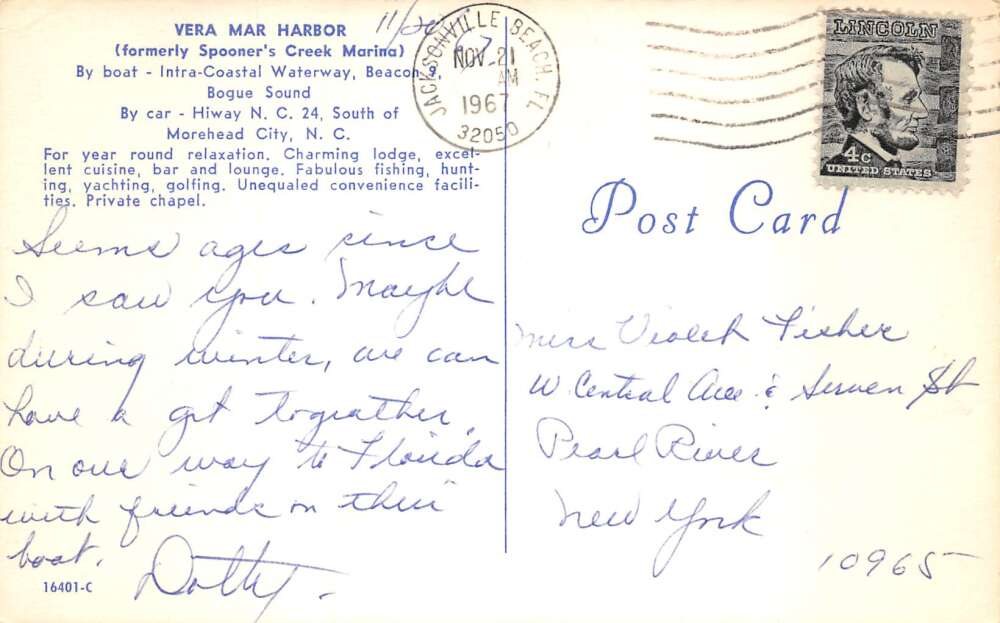 VERA MAR HARBOR
(formerly Spooner's Creek Marina)
By boat - Intra-Coastal Waterway, Beacon 9,
Bogue Sound
By car - Hiway N. C. 24, South of
Morehead City, N. C.
For year round relaxation. Charming lodge, excel-
lent cuisine, bar and lounge. Fabulous fishing, hunt-
ing, yachting, golfing. Unequaled convenience facili-
ties. Private chapel.
Seems ages since
I saw you. Maybe
during winter, we can
have a get togeather.
On our way to Florida
with friends on their
boat.
Dotty.
16401-C
11/20
67
JACKSONVILLE BEACH, FL
NOV 21
AM
1967
32050
LINCOLN
4c
UNITED STATES
Post Card
Miss Violet Fisher
W. Central Ave & Serven St
Pearl River
New York
10965